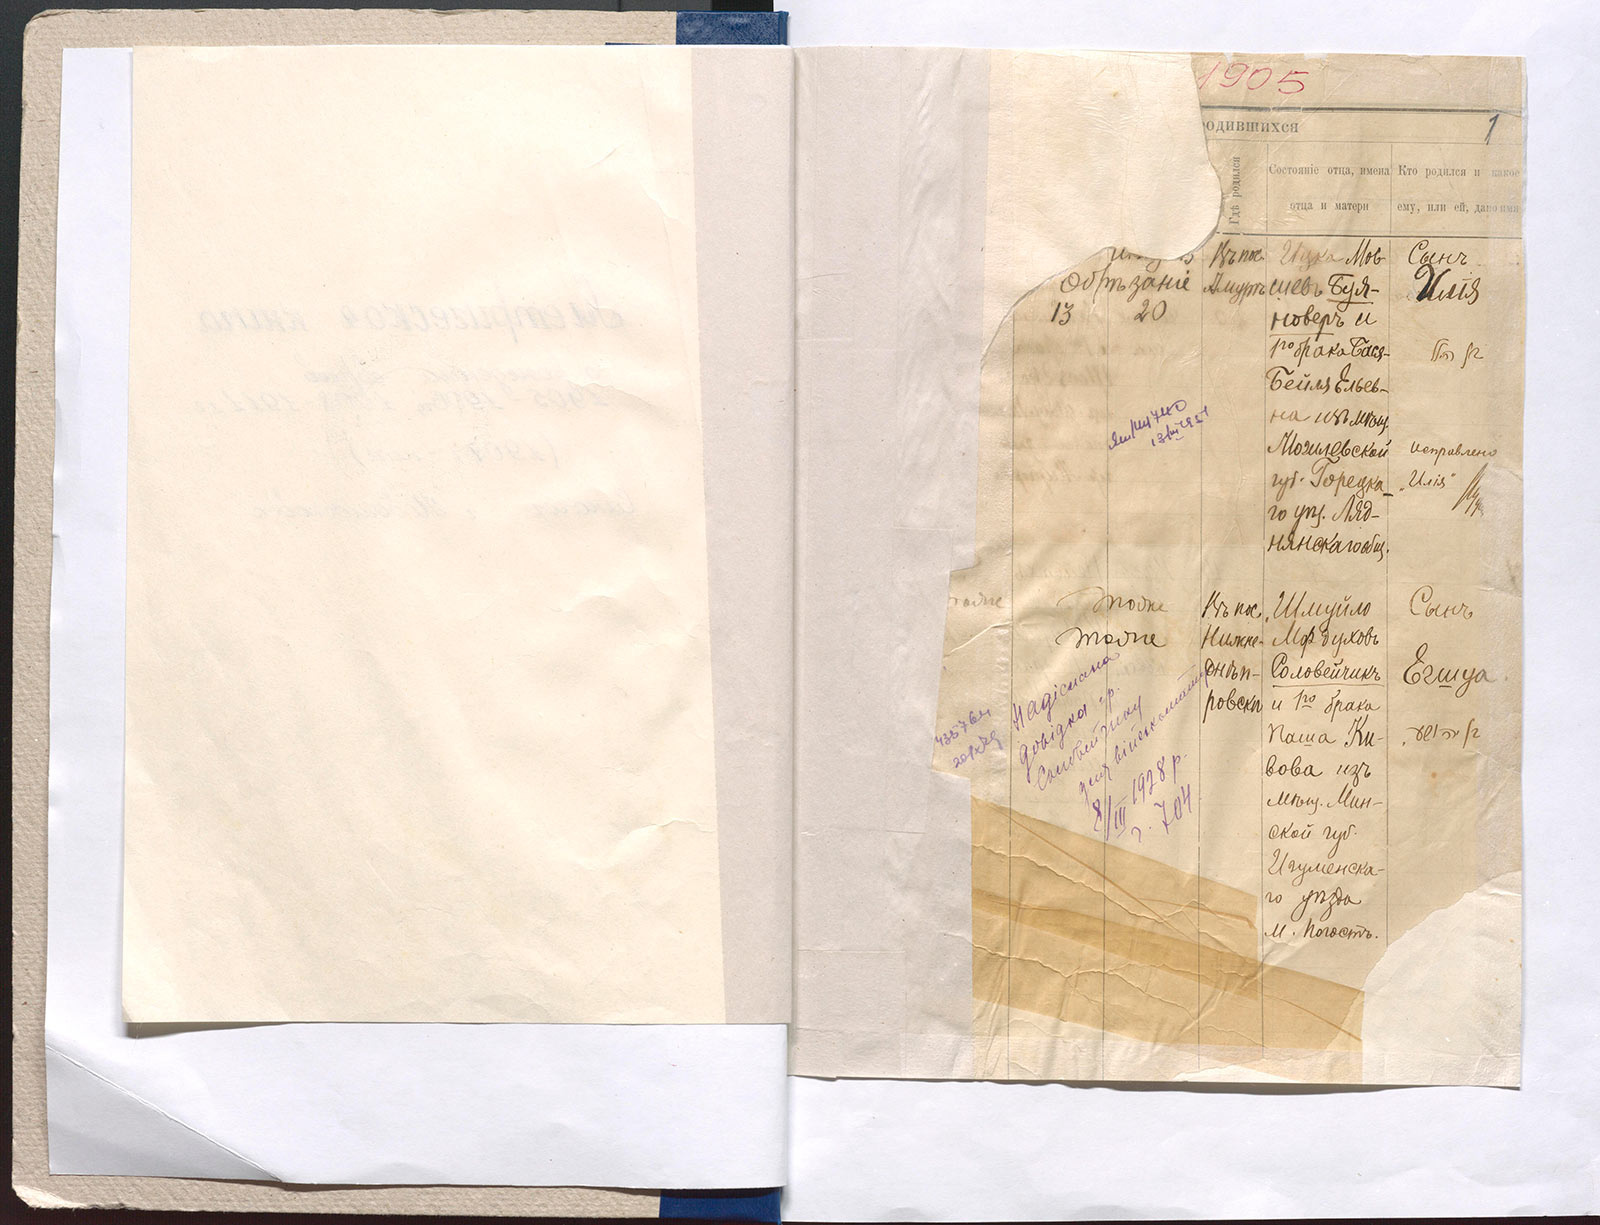 1905
одившихся
1
Гдѣ родился
Состояніе отца, имена
отца и матери
Кто родился и какое
ему, или ей, дано имя
Обрѣзаніе
13 20
Въ пос.
Амурѣ
Ицка Мов-
шевъ Буя-
новеръ и
1го брака Бася-
Бейля Ельев-
на изъ мѣщ.
Могилевской
губ. Горецка-
го уѣз. Ляд-
нянскаго общ.
Сынъ
Илія
исправлено
„Илія“
13/III 1951
тоже
тоже
тоже
Въ пос.
Нижне-
днѣп-
ровскѣ
Шмуйло
Мордуховъ
Соловейчикъ
и 1го брака
Паша Ки-
вова изъ
мѣщ. Мин-
ской губ.
Игуменска-
го уѣзда
м. Погостъ.
Сынъ
Егшуа.
Надіслана
довідка гр.
Соловейчику
для військкомату
8/III 1928 р.
704